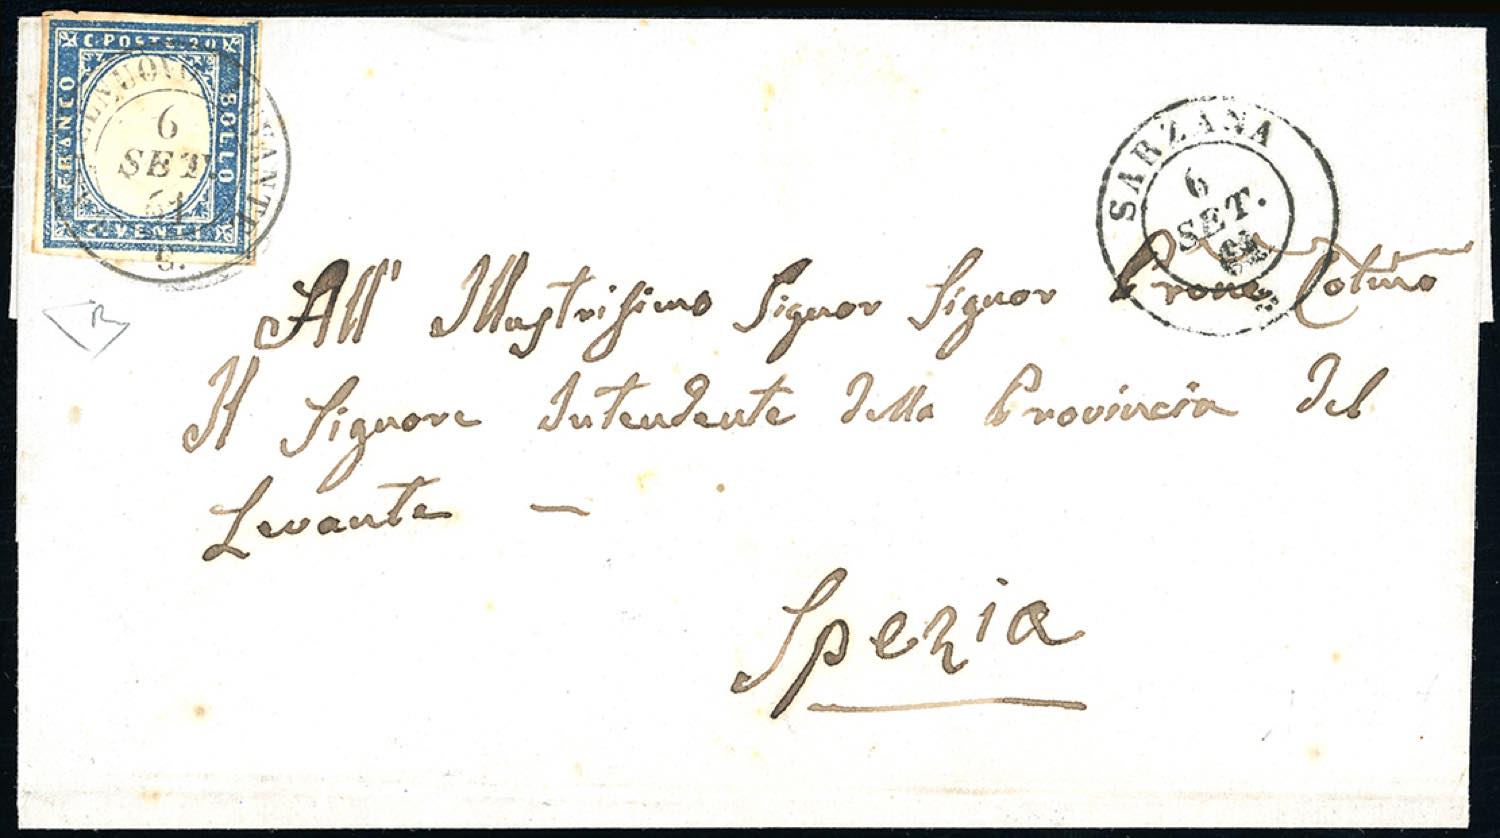 C. POSTE 20
FRANCO
BOLLO
C. VENTI
6
SET.
61
SARZANA
6
SET.
61
All' Illustrissimo Signor Signor
Il Signore Intendente della Provincia del
Levante —
Spezia